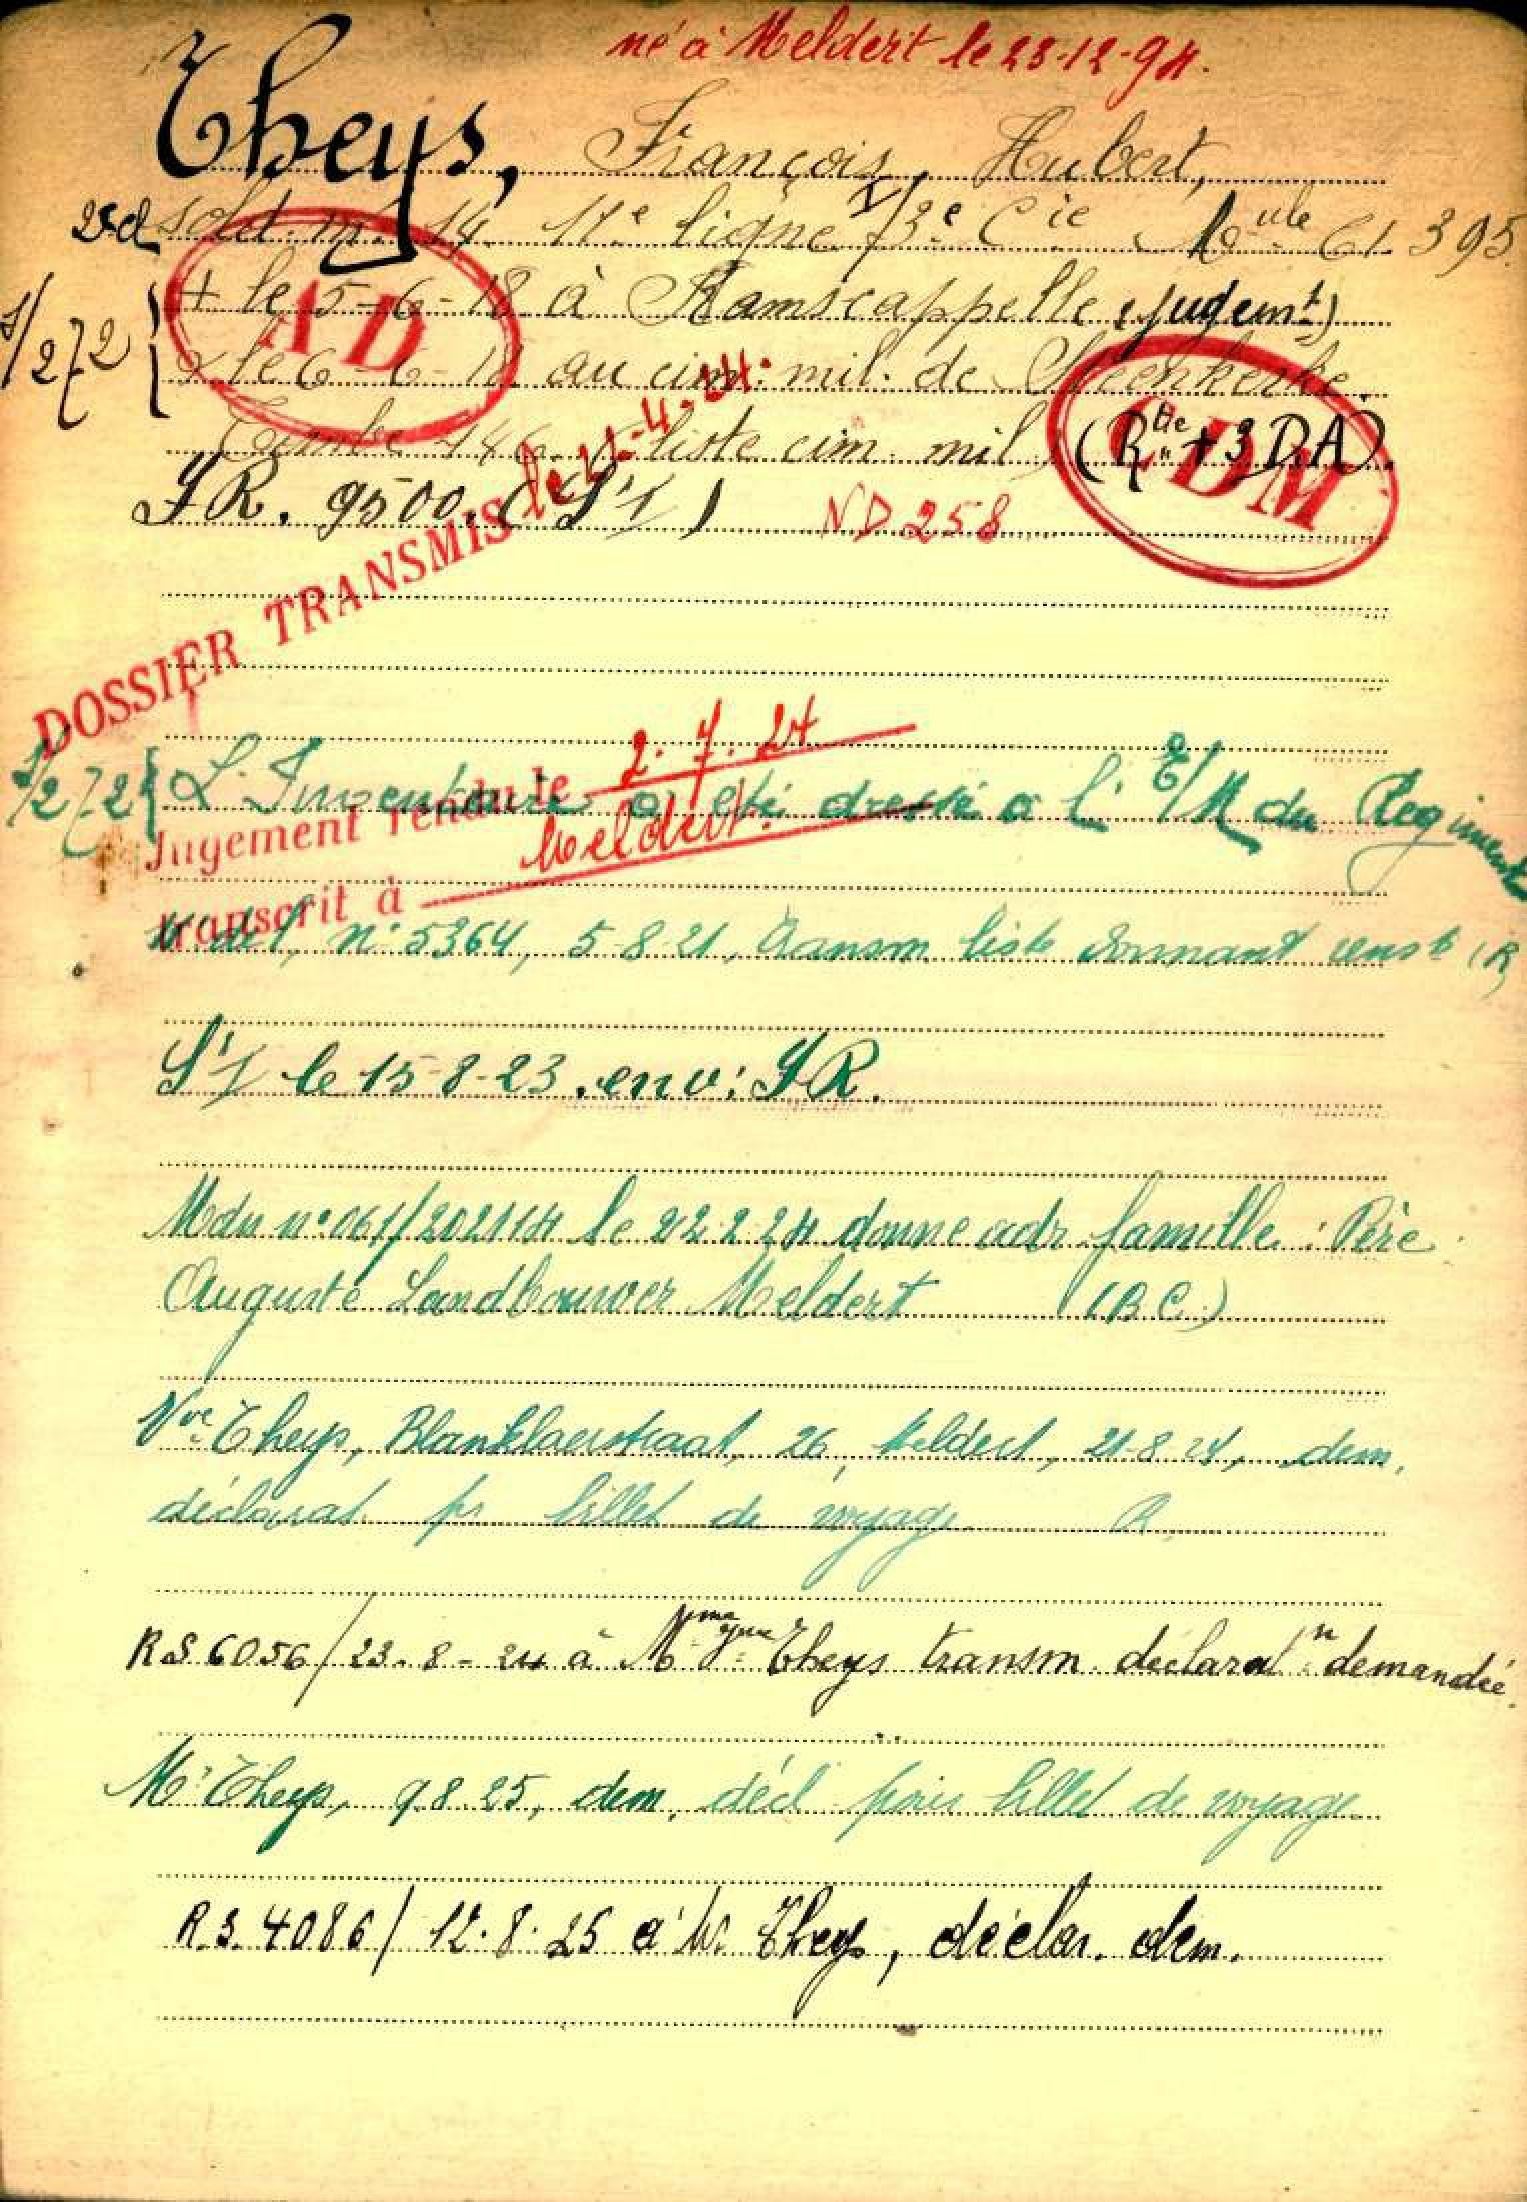 né à Meldert le 23-12-94.
Theys, François, Hubert,
sold. mce 14. 11e ligne I/3e Cie Mule 61.395
+ le 5-6-18 à Ramscappelle (Jugemt)
AD
1/272 { x le 6-6-18 au cim. mil. de Steenkerke.
Tombe 146. liste cim. mil. (Rtte + 3 DA).
CDM
SR. 9500. (S'I) ND 258
DOSSIER TRANSMIS le 4-24.
{ L'Inventaire a été dressé à l' du Regiment
Jugement rendu le 2.7.24
transcrit à Meldert.
n° 5364, 5-8-21, transm. liste donnant (R)
S'I le 15-8-23. env: SR.
Mdn n° 061/202114 le 22.2.24 donne adr. famille : Père
Auguste Landbouwer Meldert (B.C.)
Vve Theys, Blanklaerstraat, 26, Meldert, 21-8-24, dem.
déclarat. pr. billet de voyage R.
R.S 6056/23-8-24 à Mme Theys transm. déclaratn demandée
Mr Theys, 9.8.25, dem. décl. pour billet de voyage
R.S. 4086/12.8.25 à M. Theys, déclar. dem.